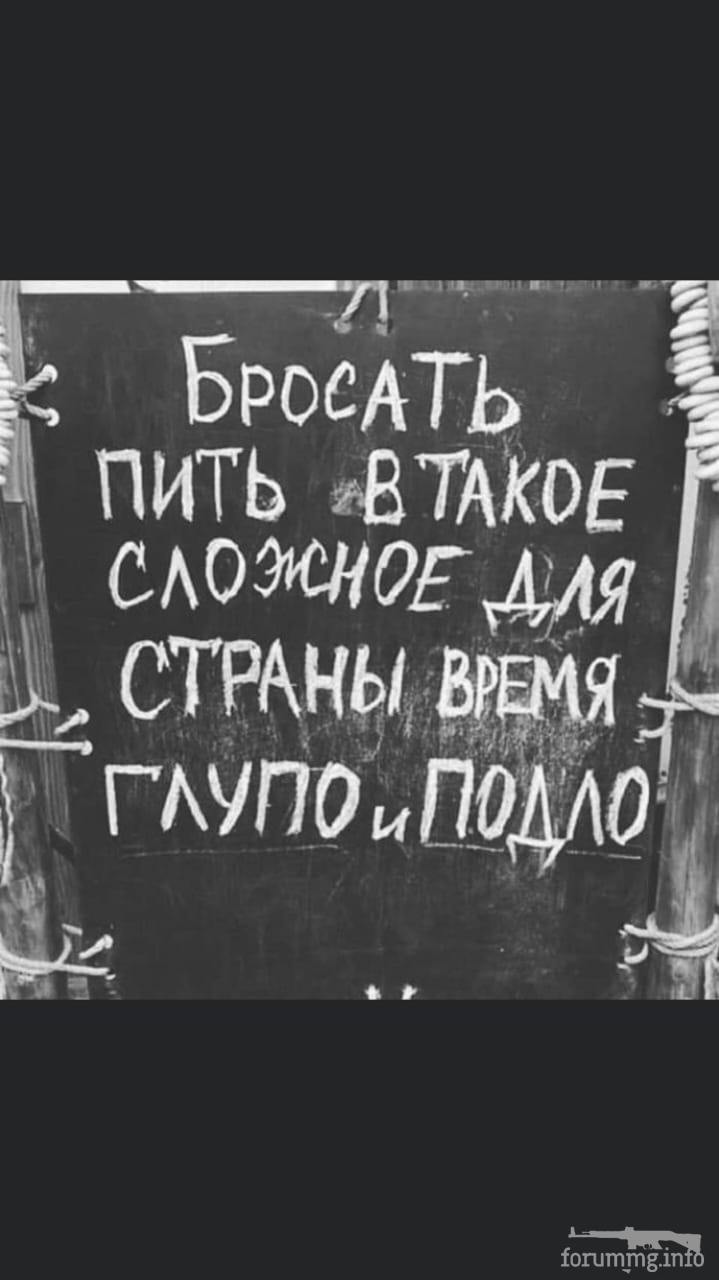 Бросать
пить в такое
сложное для
страны время
глупо и подло
forummg.info